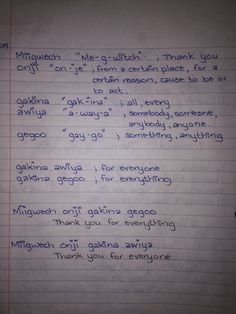 Miigwech "Me-g-witch" ; Thank you
onji "on-je" ; from a certain place, for a
certain reason, cause to be or
to act.
gakina "gak-ina" ; all, every
awiya "a-way-a" ; somebody, someone,
anybody, anyone.
gegoo "gay-go" ; something, anything
gakina awiya ; for everyone
gakina gegoo ; for everything
Miigwech onji gakina gegoo
Thank you for everything
Miigwech onji gakina awiya
Thank you for everyone